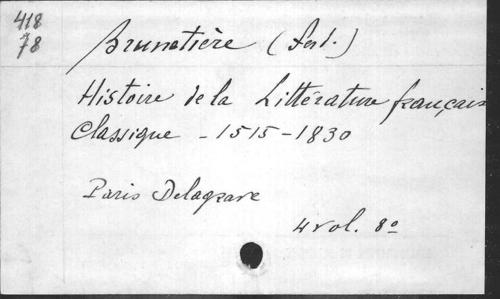 418
78
Brunetière (ferd.)
Histoire de la Littérature français
Classique - 1515-1830
Paris Delagrave
4 vol. 8º